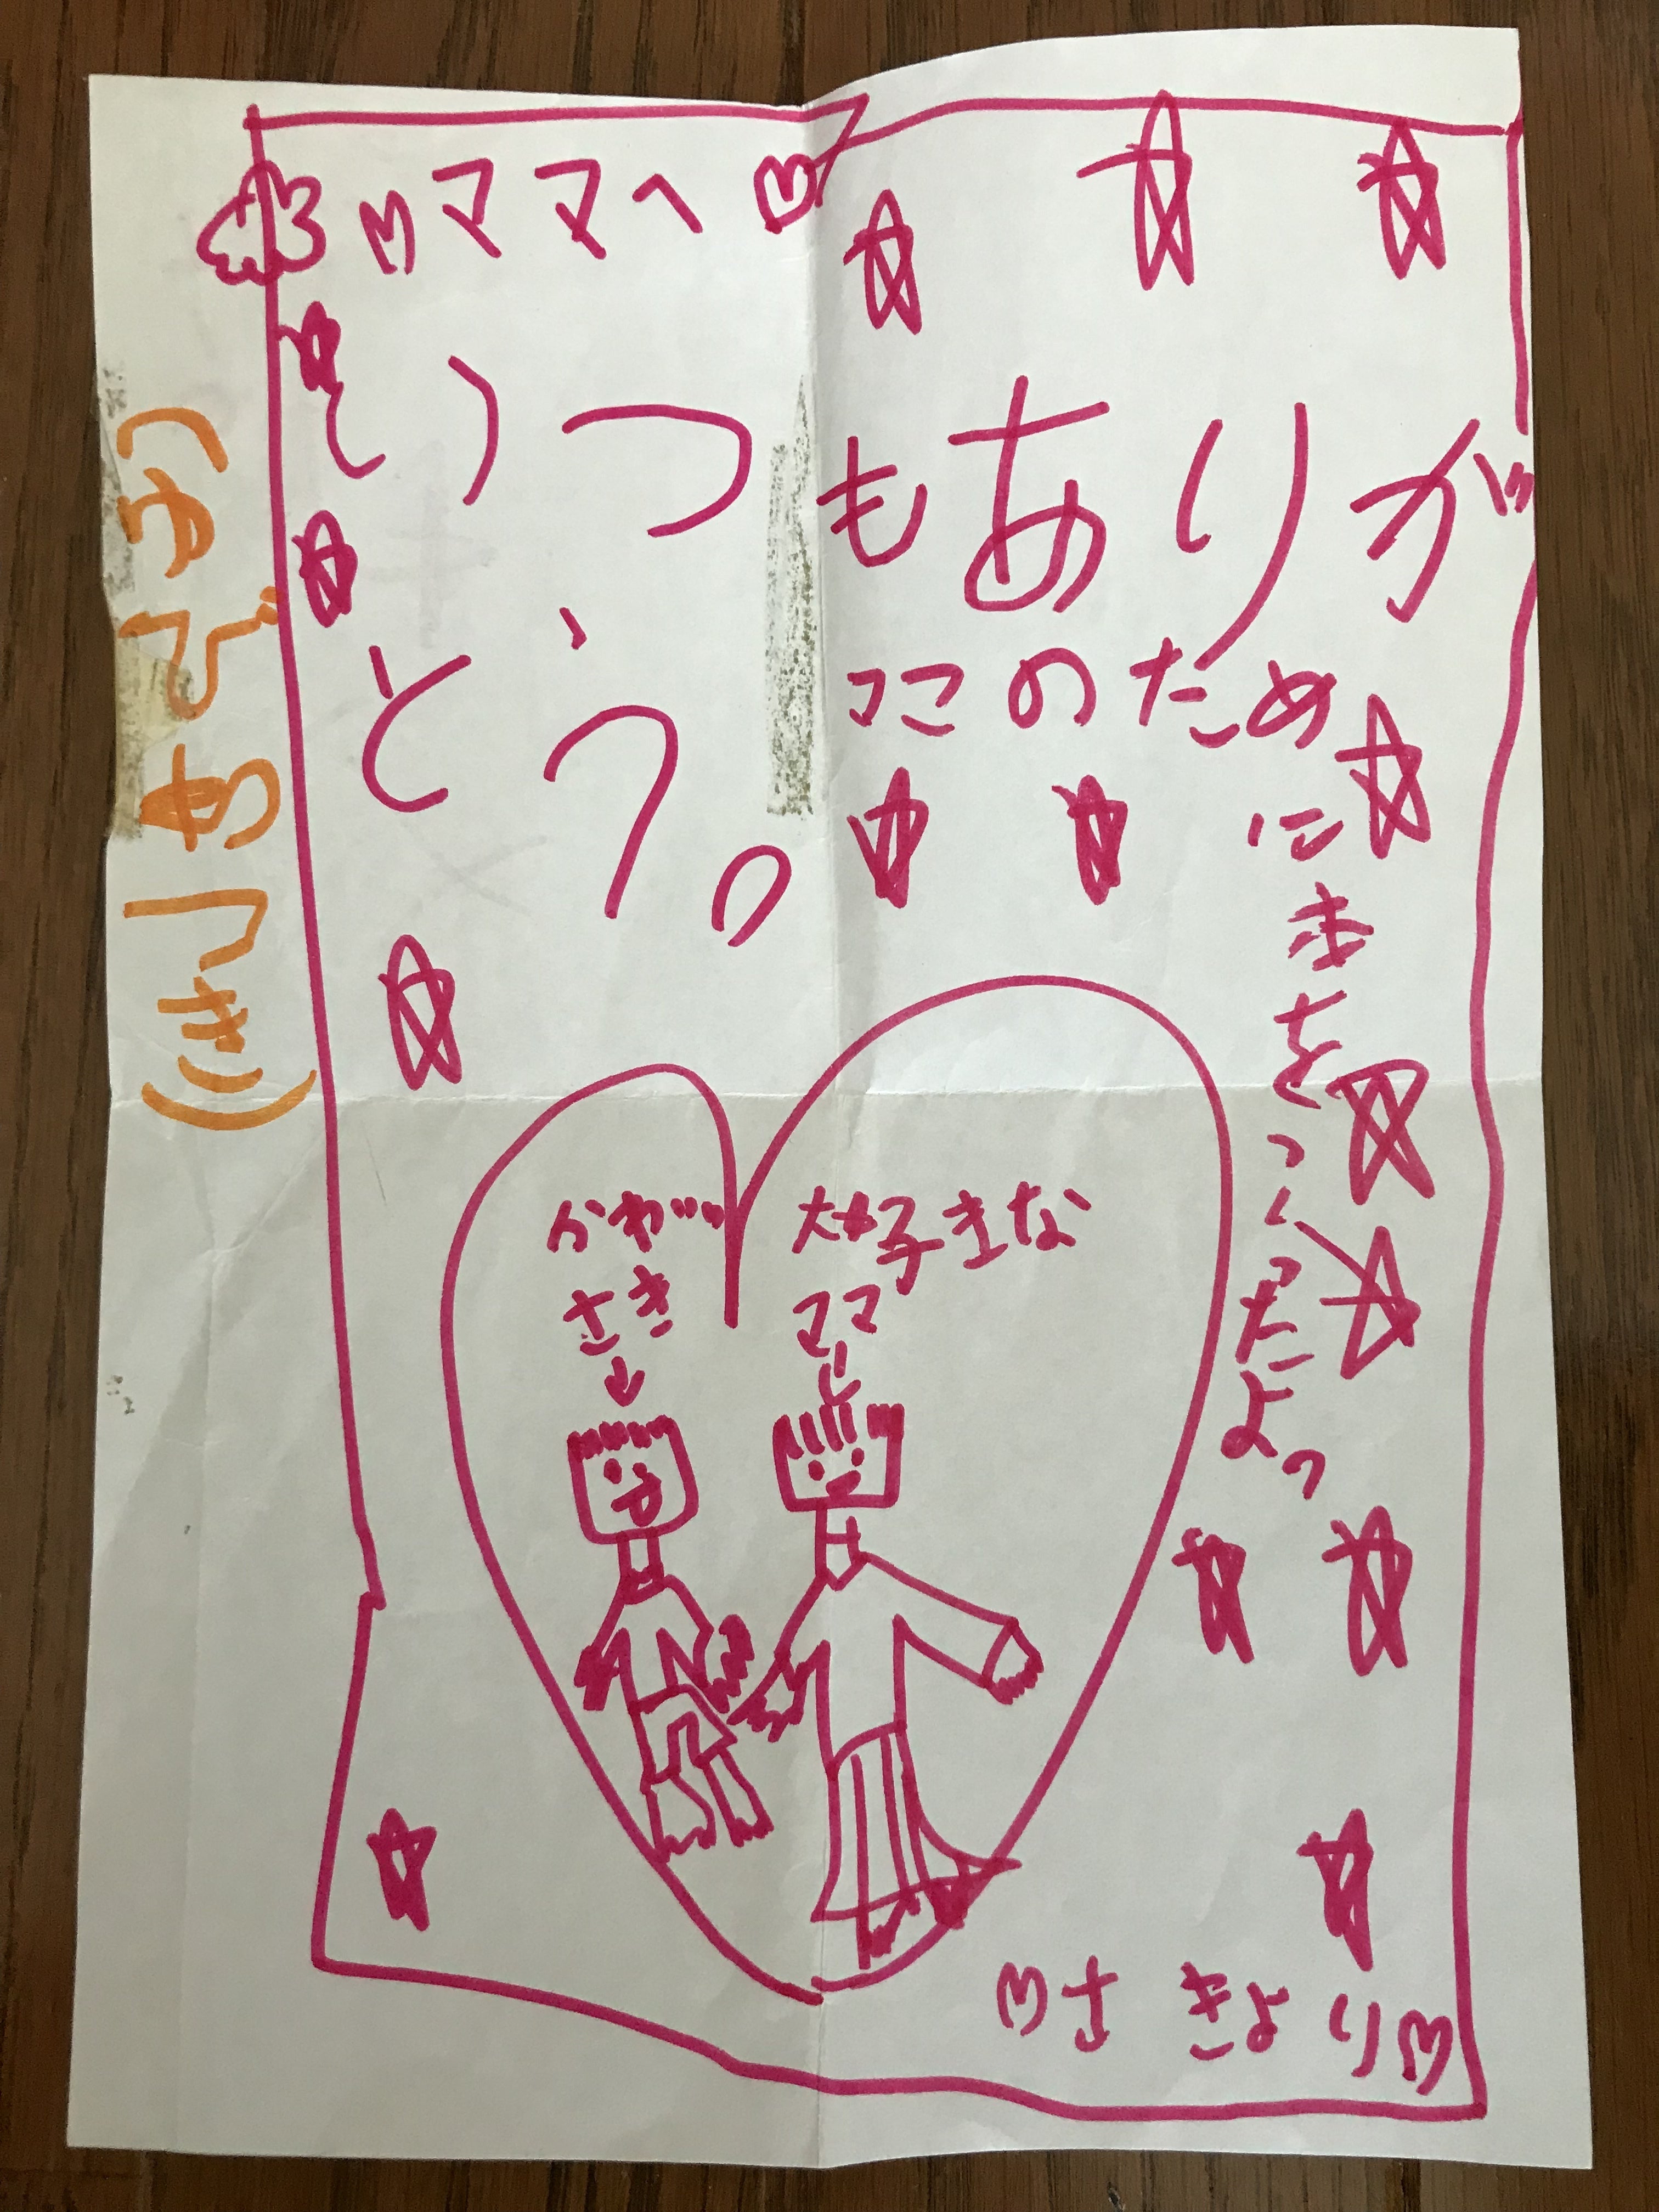 ママへ
いつもありが
とう。
ママのため
に本をつくったよ。
かわいい
さき
大好きな
ママ
さきより